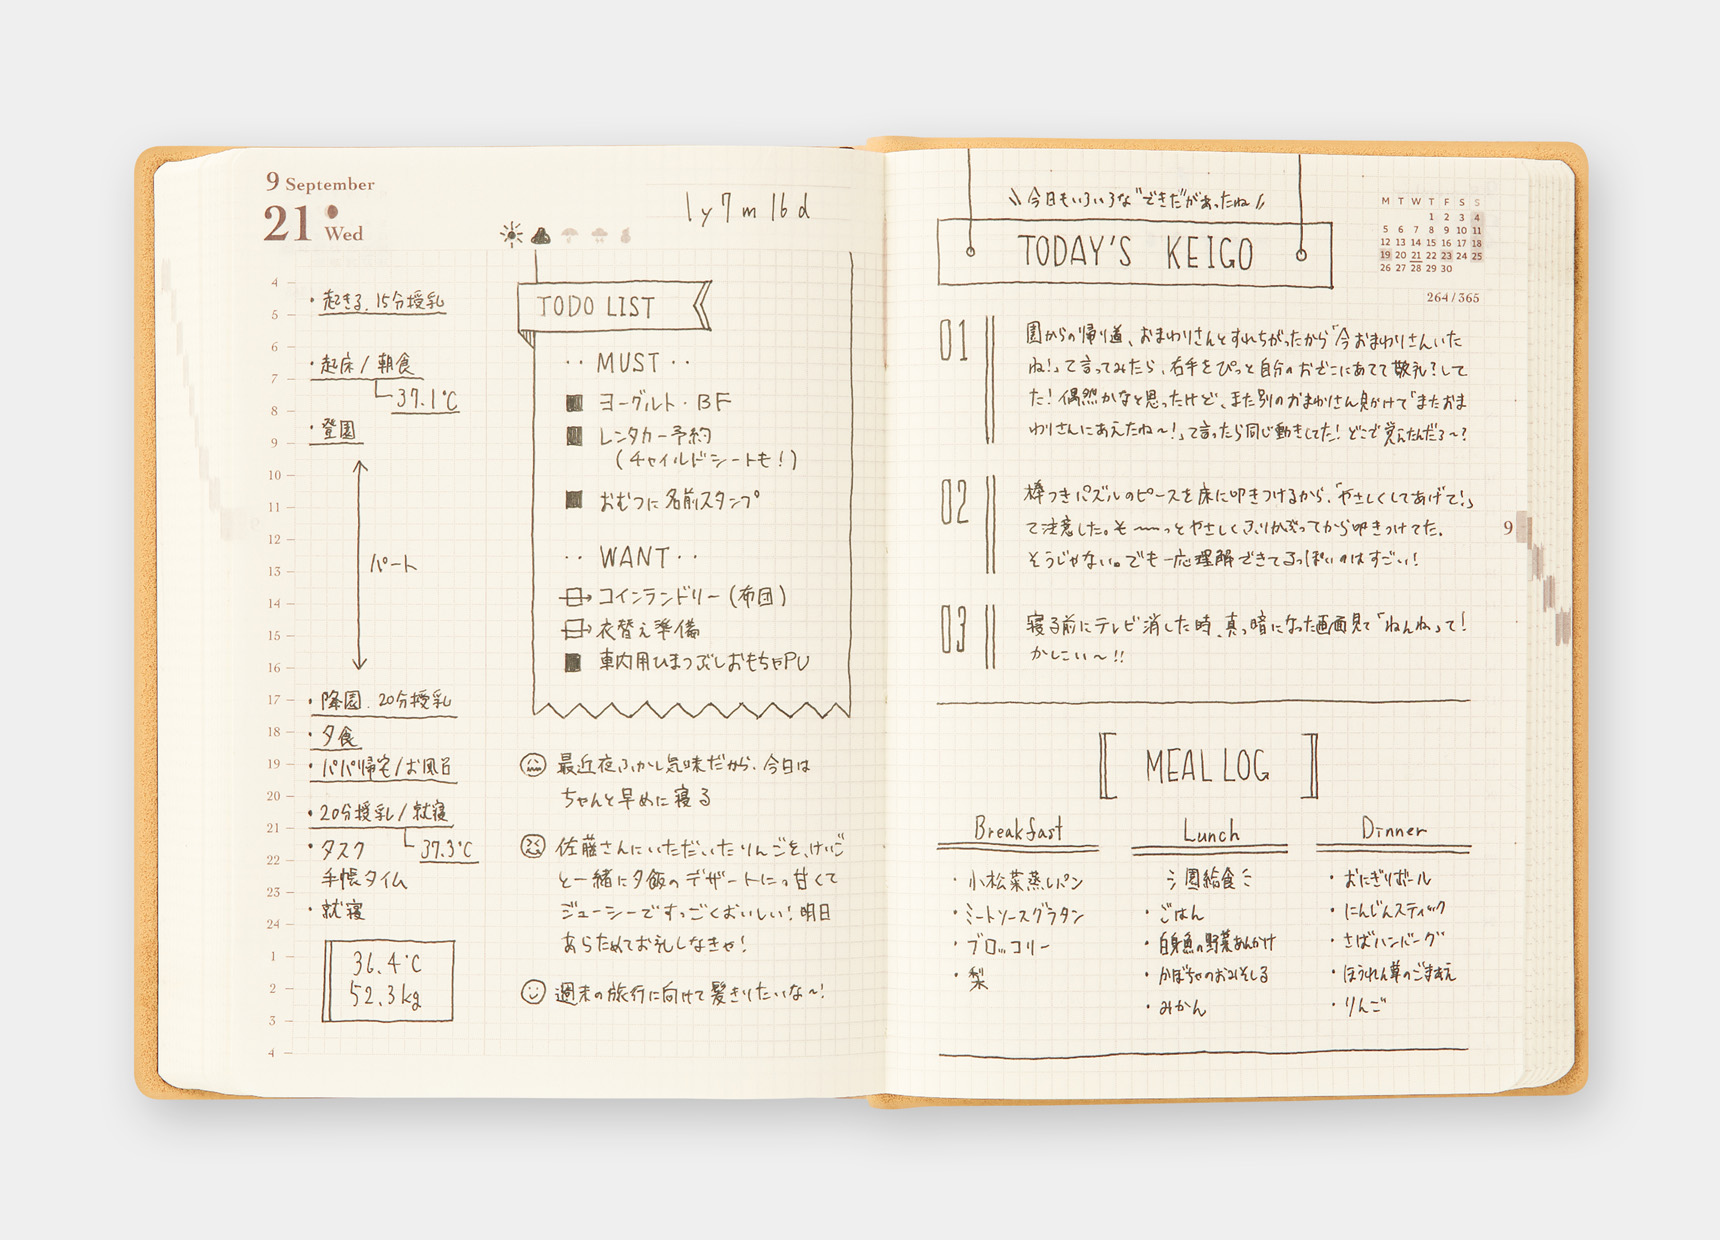 9 September
21 Wed
1y 7m 16d
4
・起きる、15分授乳
5
6
・起床 / 朝食
7
37.1℃
8
・登園
9
10
11
12
パート
13
14
15
16
17
・降園、20分授乳
18
・夕食
19
・パパ帰宅/お風呂
20
・20分授乳/就寝
21
・タスク
37.3℃
22
手帳タイム
23
・就寝
24
1
36.4℃
2
52.3kg
3
4
TODO LIST
・・MUST・・
ヨーグルト・BF
レンタカー予約
(チャイルドシートも!)
おむつに名前スタンプ
・・WANT・・
コインランドリー(布団)
衣替え準備
車内用ひまつぶしおもちゃPU
最近夜ふかし気味だから、今日は
ちゃんと早めに寝る
佐藤さんにいただいたりんごを、けいご
と一緒に夕飯のデザートに。甘くて
ジューシーですっごくおいしい!明日
あらためてお礼しなきゃ!
週末の旅行に向けて髪きりたいな〜!
\\ 今日もいろいろな"できた"があったね //
TODAY'S KEIGO
M T W T F S S
1 2 3 4
5 6 7 8 9 10 11
12 13 14 15 16 17 18
19 20 21 22 23 24 25
26 27 28 29 30
264/365
01
園からの帰り道、おまわりさんとすれちがったから「今おまわりさんいた
ね!」って言ってみたら、右手をぴっと自分のおでこにあてて敬礼?して
た!偶然かなと思ったけど、また別のおまわりさん見かけて「またおま
わりさんにあえたね〜!」って言ったら同じ動きしてた!どこで覚えたんだろ〜?
02
棒つきパズルのピースを床に叩きつけるから、「やさしくしてあげて!」
て注意した。そ〜〜っとやさしくふりかぶってから叩きつけてた。
そうじゃない。でも一応理解できてるっぽいのはすごい!
03
寝る前にテレビ消した時、真っ暗になった画面見て「ねんね」って!
かしこい〜!!
9
MEAL LOG
Breakfast
・小松菜蒸しパン
・ミートソースグラタン
・ブロッコリー
・梨
Lunch
園給食
・ごはん
・白身魚の野菜あんかけ
・かぼちゃのおみそしる
・みかん
Dinner
・おにぎりボール
・にんじんスティック
・さばハンバーグ
・ほうれん草のごまあえ
・りんご